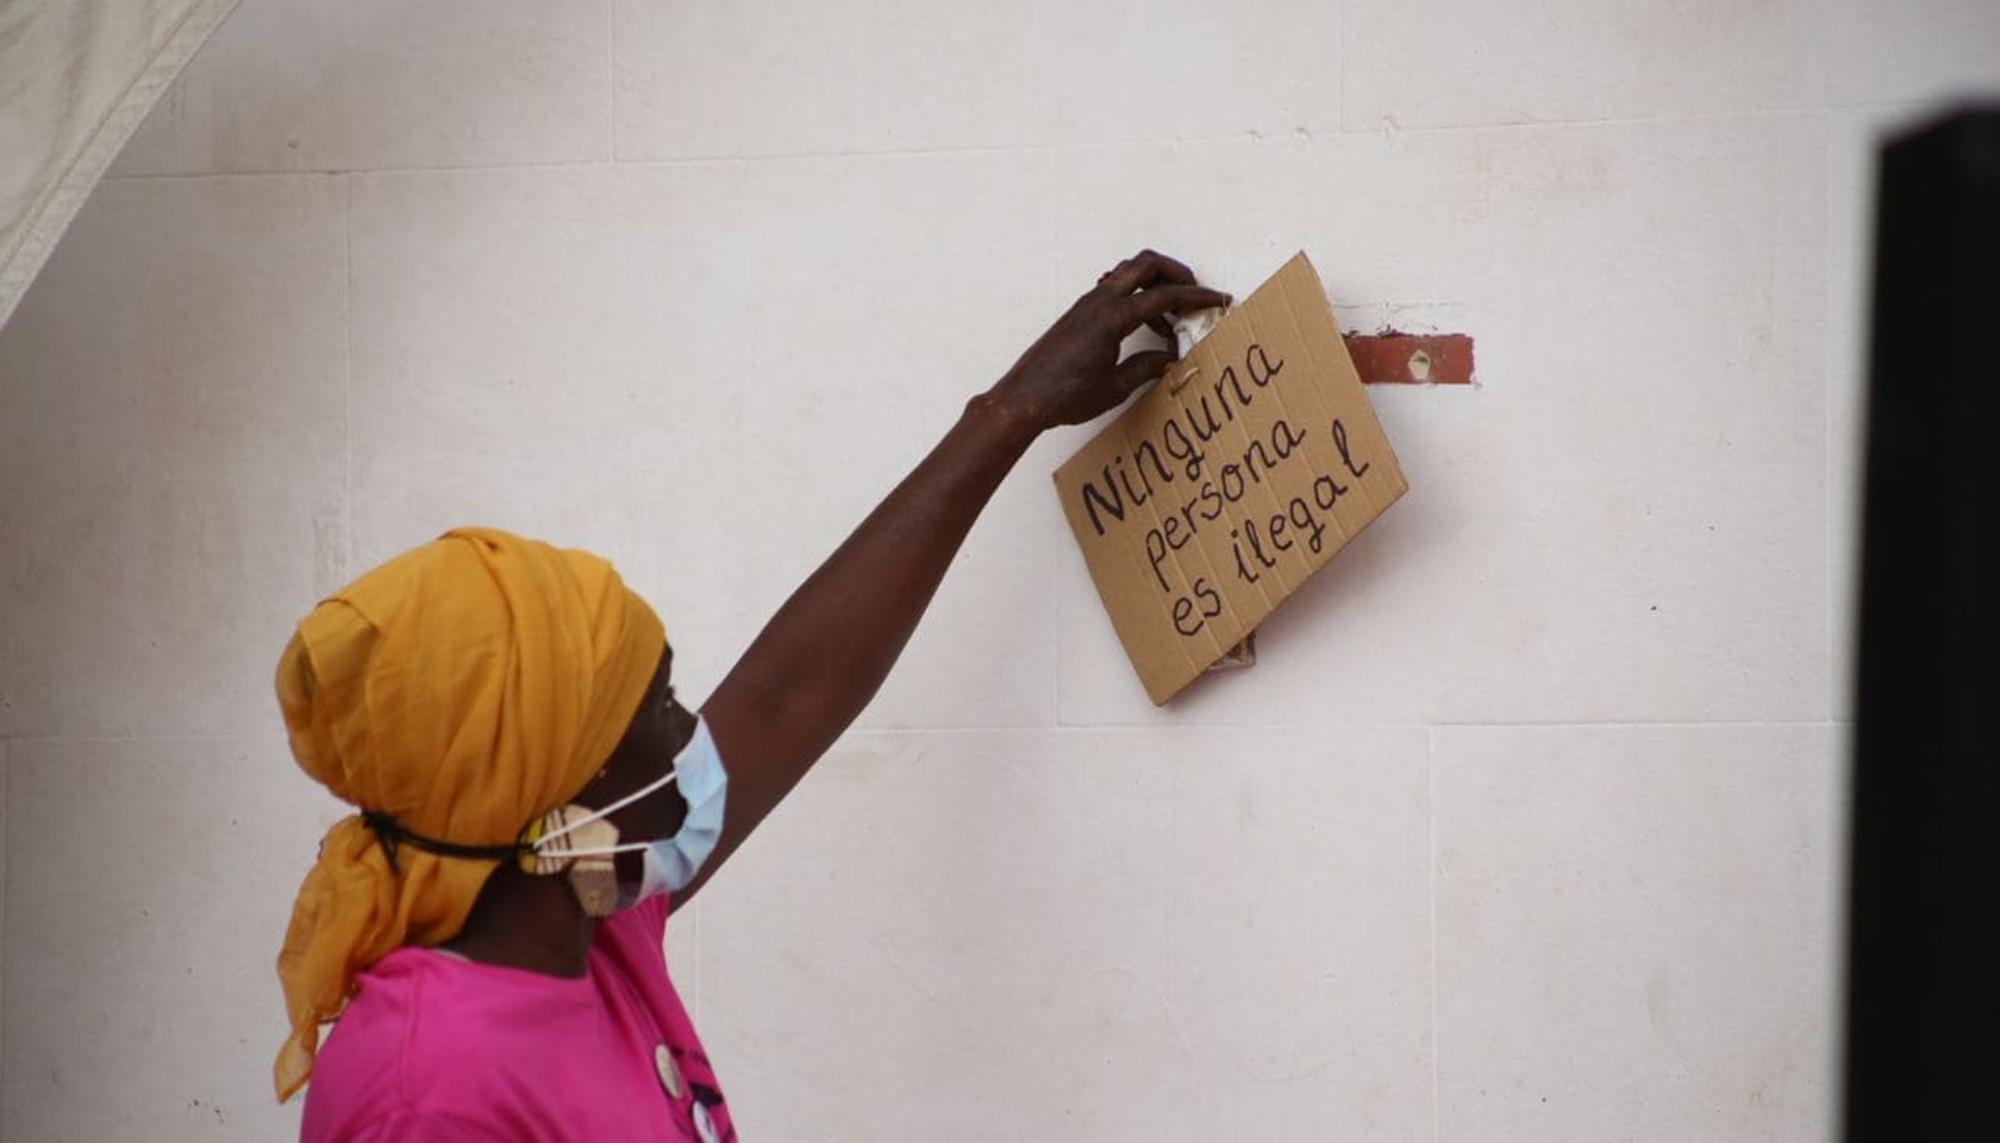 Ninguna
persona
es ilegal